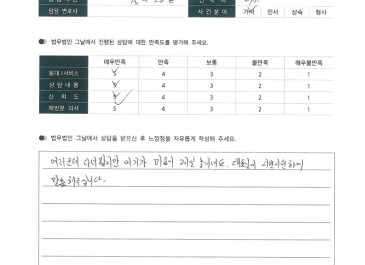 담당변호사
사건분야 가사 민사 상속 형사
법무법인 그날에서 진행된 상담에 대한 만족도를 평가해 주세요.
매우만족 만족 보통 불만족 매우불만족
응대/서비스 5 4 3 2 1
상담내용 5 4 3 2 1
신뢰도 5 4 3 2 1
재방문 의사 5 4 3 2 1
법무법인 그날에서 상담을 받으신 후 느낌점을 자유롭게 작성해 주세요.
여러군데 다녀봤지만 여기가 마음이 제일 놓이네요.
말씀해주십니다.